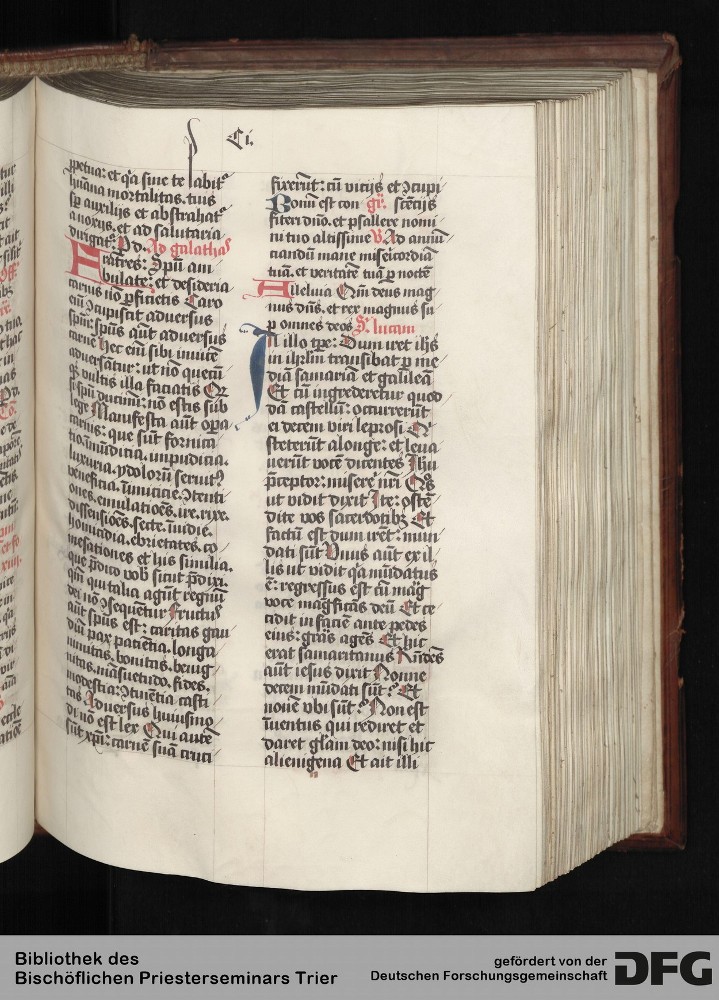 Ci.
ꝑpetua: et q̇a sine te labit᷑
huāna mortalitas. tuis
sꝑ auxilijs et abstrahat᷑
a noxijs. et ad salutaria
dirigat᷑. P d. Ad galathas
Fratres: Spū am
bulate: et desideria
carnis nō ꝑficietis Caro
em̄ ɔcupiscit adversus
spm̄: spūs aūt aduersus
carnē Hec em̄ sibi inuicē
aduersant᷑: ut nō quecū
qȝ vultis illa faciatis Qꝫ
si spū ducim̄: nō estis sub
lege Manifesta aūt oꝑa
carnis: que sūt fornica
tio. īmūdicia. impudicia.
luxuria. ydolorū seruit᷑
veneficia. īimicicie. ɔtenti
ones. emulatiōes. ire. rixe.
dissensiōes. secte. īuidie.
homicidia. ebrietates. co
mesationes et hijs similia.
que p̄dico vob̄ sicut p̄dixi.
qm̄ qui talia agūt regnū
dei nō ɔsequētur Fructus
aūt spūs est: caritas gau
diū pax patiētia. longa
nimitas. bonitas. benig
nitas. māsuetudo. fides.
modestia: ɔtinētia casti
tas Aduersus huiusmō
di nō est lex Qui autē
sūt xp̄i: carnē suā cruci
fixerūt: cū vicijs et ɔcupi
Bonū est con gr̄. scētijs
fiteri dn̄o. et psallere nomi
ni tuo altissime V. Ad annū
ciandū mane misericordiā
tuā. et veritatē tuā ꝑ noctē
Alleluia Qm̄ deus mag
nus dn̄s. et rex magnus su
ꝑ omnes deos Sc̄. lucam
In illo tꝑe: Dum iret ih̄s
in ihrl̄m transibat ꝑ me
diā samariā et galileā
Et cū ingrederetur quod
dā castellū: occurrerūt
ei decem viri leprosi Qi
steterūt alonge: et leua
uerūt vocē dicentes Ihū
p̄ceptor: misere nr̄i Qōs
ut vidit dixit Ite: ostē
dite vos sacerdotibȝ Et
factū est dum irēt: mun
dati sūt Vnus aūt ex il
lis ut vidit q̇a mūdatus
ē: regressus est cū maḡ
voce magficās deū Et ce
cidit in faciē ante pedes
eius: grās agēs Et hic
erat samaritanus Rn̄dēs
aūt iesus dixit Nonne
decem mūdati sūt? Et
nouē vbi sūt? Non est
īuentus qui rediret et
daret glām deo: nisi hic
alienigena Et ait illi
Bibliothek des
Bischöflichen Priesterseminars Trier
gefördert von der
Deutschen Forschungsgemeinschaft
DFG